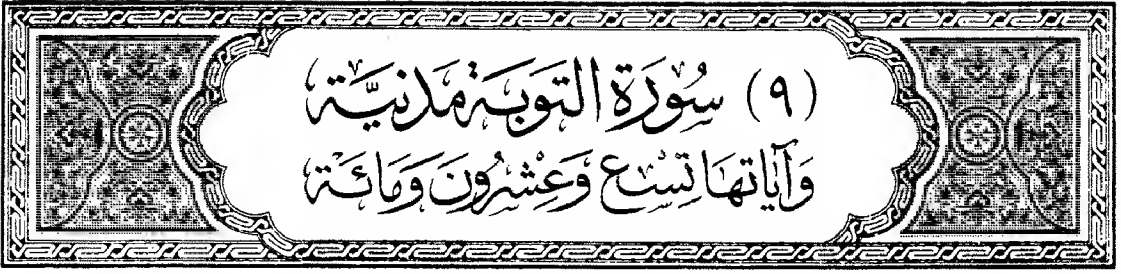 (٩) سُورَةُ التَّوبَةِ مَدَنِيَّةٌ
وَآيَاتُهَا تِسْعٌ وَعِشْرُونَ وَمَائَةٌ